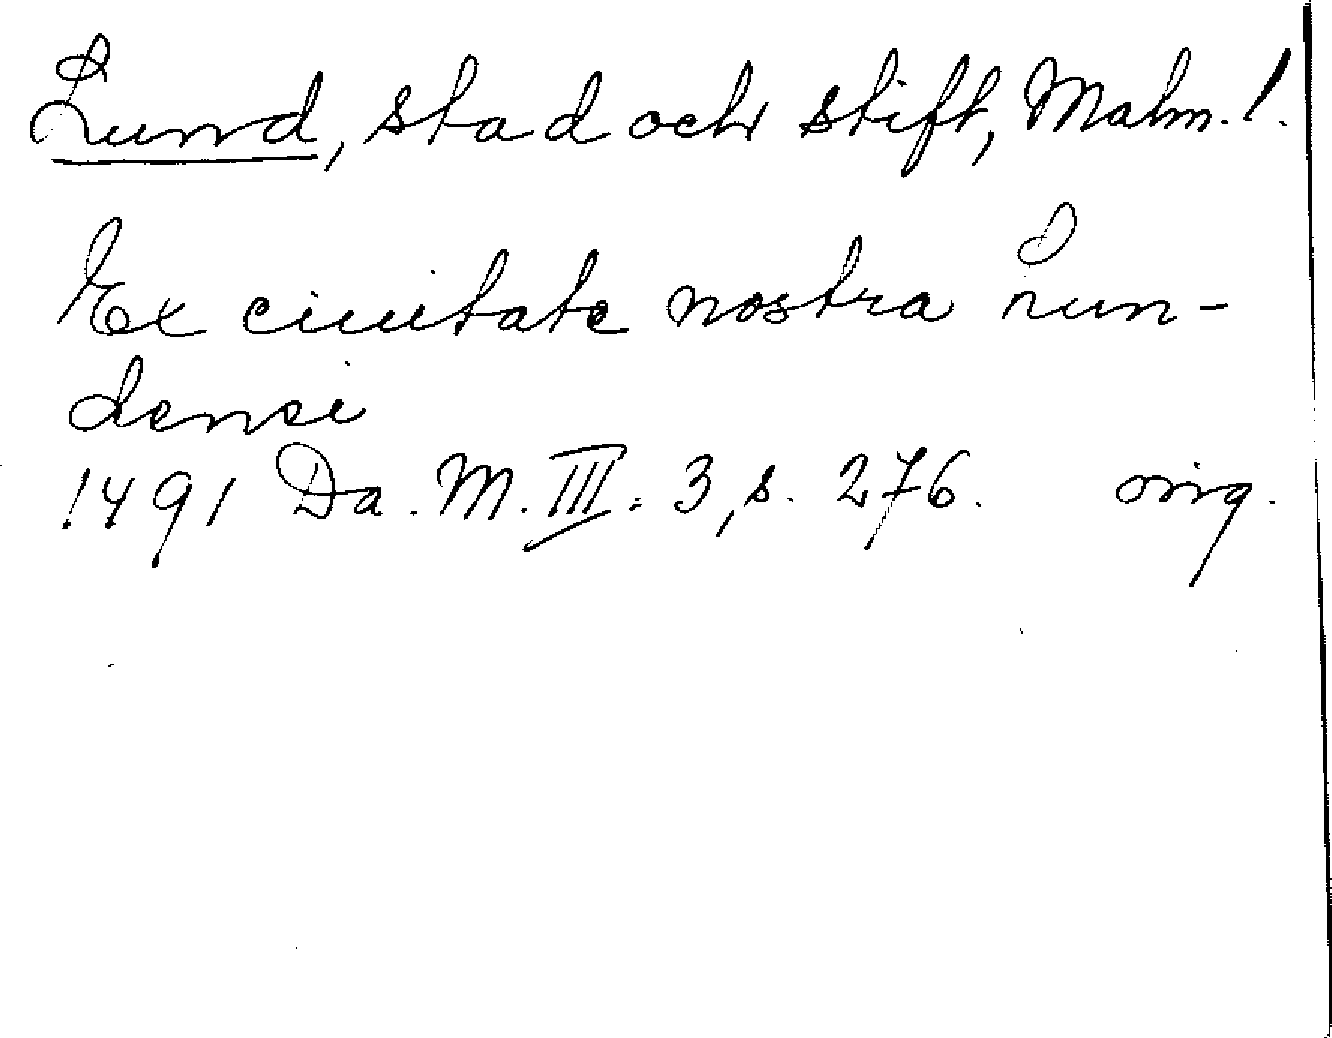 Lund, stad och stift, Malm. l.
Ex ciuitate nostra Lun-
densi
1491 Da. M. III: 3, s. 276. orig.